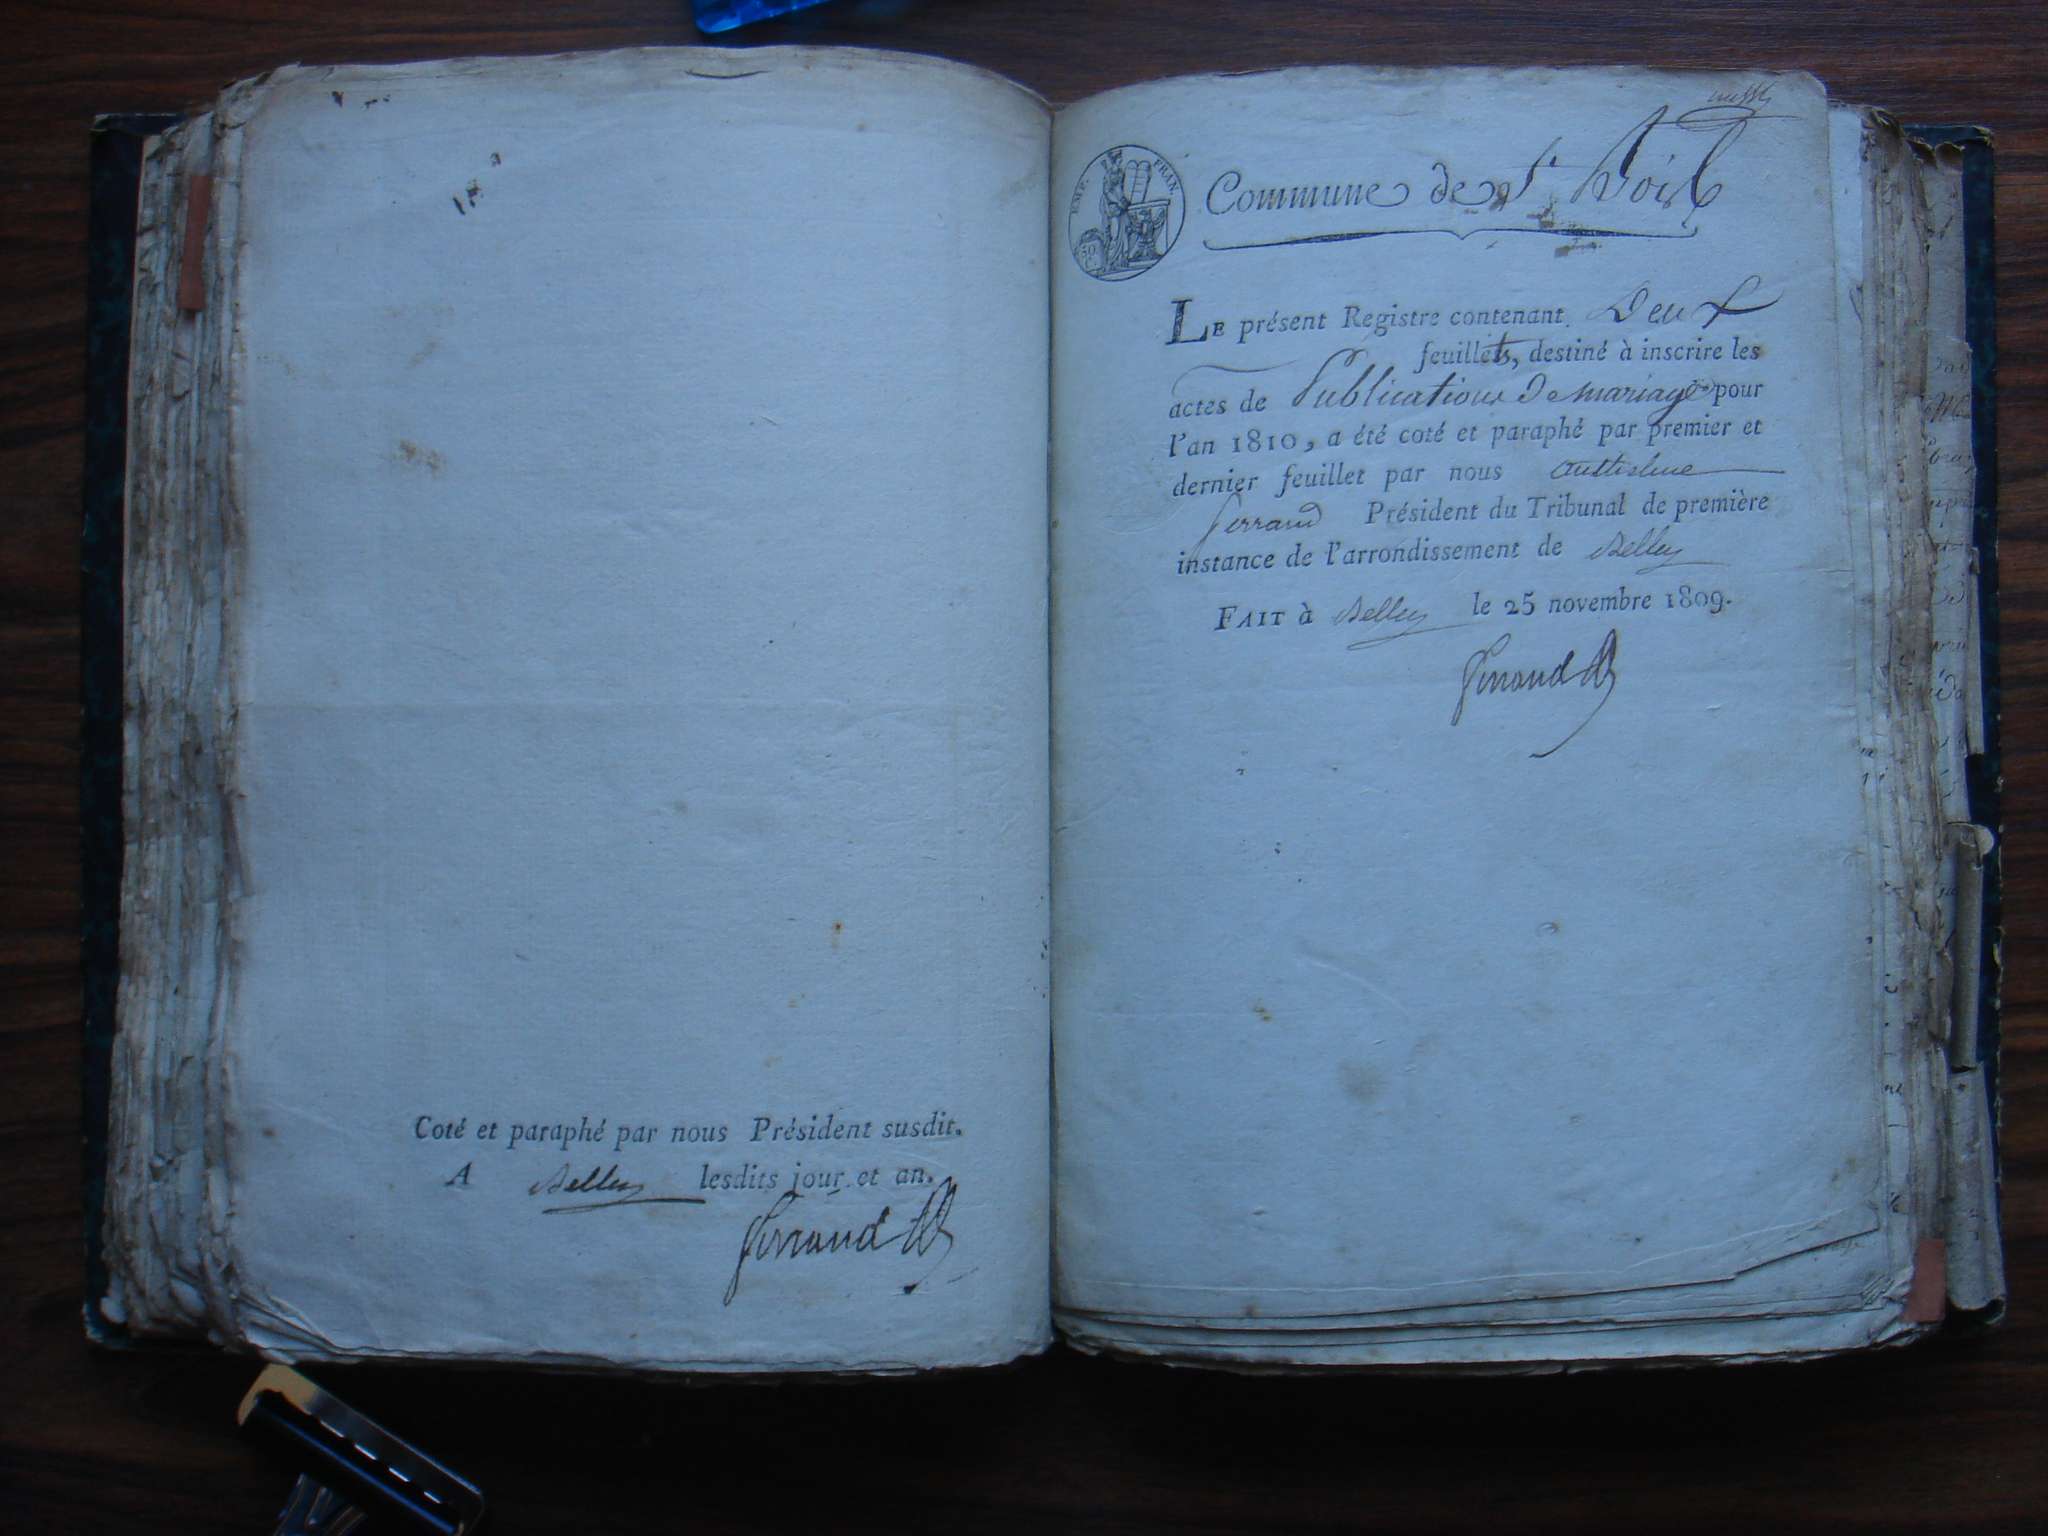 Coté et paraphé par nous Président susdit.
A Belley lesdits jour et an.
Ferrand
EMP. FRAN.
50 C.
Commune de St Boib
LE présent Registre contenant Deux
feuillets, destiné à inscrire les
actes de Publications De mariage pour
l'an 1810, a été coté et paraphé par premier et
dernier feuillet par nous Anthelme
Ferrand Président du Tribunal de première
instance de l'arrondissement de Belley
FAIT à Belley le 25 novembre 1809.
Ferrand